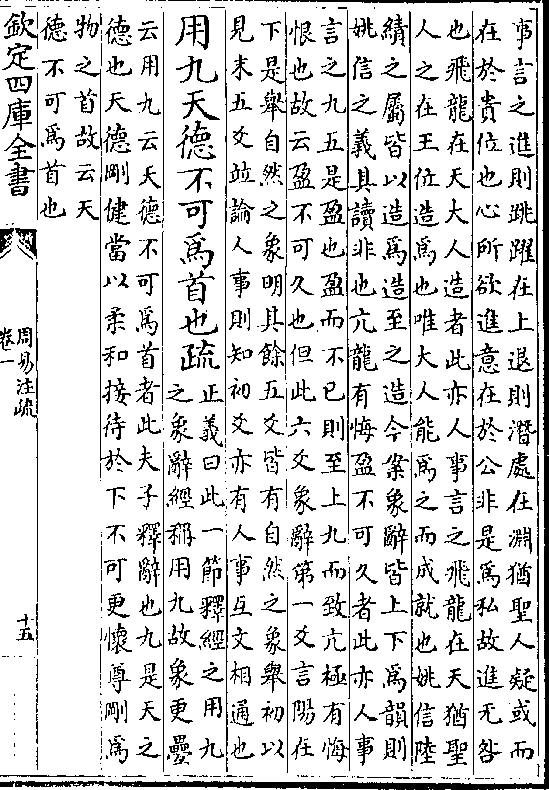 事言之進則跳躍在上退則潛處在淵猶聖人疑或而
在於貴位也心所欲進意在於公非是爲私故進无咎
也飛龍在天大人造者此亦人事言之飛龍在天猶聖
人之在王位造爲也唯大人能爲之而成就也姚信陸
績之屬皆以造爲造至之造今案象辭皆上下爲韻則
姚信之義其讀非也亢龍有悔盈不可久者此亦人事
言之九五是盈也盈而不已則至上九而致亢極有悔
恨也故云盈不可久也但此六爻象辭第一爻言陽在
下是舉自然之象明其餘五爻皆有自然之象舉初以
見末五爻並論人事則知初爻亦有人事互文相通也
用九天德不可爲首也疏
正義曰此一節釋經之用九
之象辭經稱用九故象更疊
云用九云天德不可爲首者此夫子釋辭也九是天之
德也天德剛健當以柔和接待於下不可更懷尊剛爲
物之首故云天
德不可爲首也
欽定四庫全書
周易注疏
卷一
十五